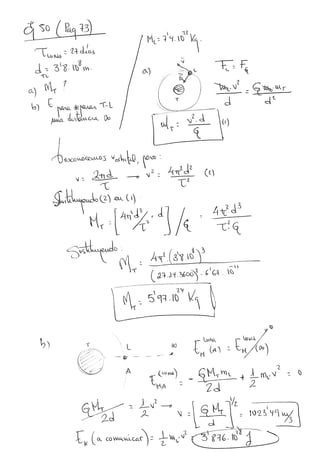 50 (Pag 73)
T luna = 27 días
d TL = 3'8·10⁸ m.
a) M_T ?
b) E para separar T-L una distancia ∞
M_L = 7'4·10²² Kg.
a)
v
L
T
F_c = F_g
m_L·v²/d = G m_L m_T/d²
M_T = v²·d/G (1)
Desconocemos v orbital, pero:
v = 2πd/T → v² = 4π²d²/T² (2)
Sustituyendo (2) en (1)
M_T = [4π²d²/T² · d] / G = 4π²d³/T²·G
Sustituyendo:
M_T = 4π²(3'8·10⁸)³/(27·24·3600)²·6'67·10⁻¹¹
M_T = 5'97·10²⁴ Kg
b)
T L ∞
A
E_M^luna (A) = E_M^luna (∞) 0
E_MA^(luna) = - G M_T m_L/2d + 1/2 m_L·v² = 0
G M_T/2d = 1/2 v² → v = [G M_T/d]^1/2 = 1023'49 m/s
E_k (a comunicar) = 1/2 m_L·v² = 3'876·10²⁸ J